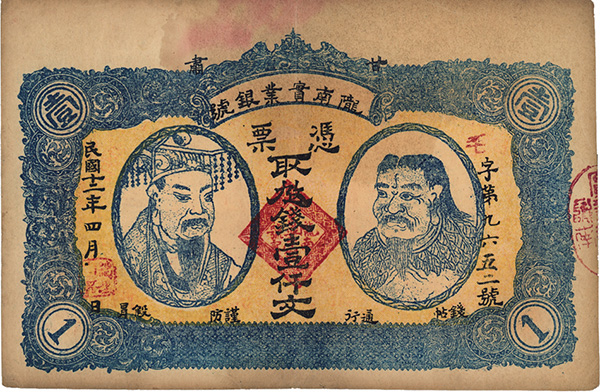 甘肅
隴南實業銀號
壹
壹
憑票
取 錢壹仟文
字第九六五二號
民國十二年四月 日
錢帖通行
謹防 冒
1
1